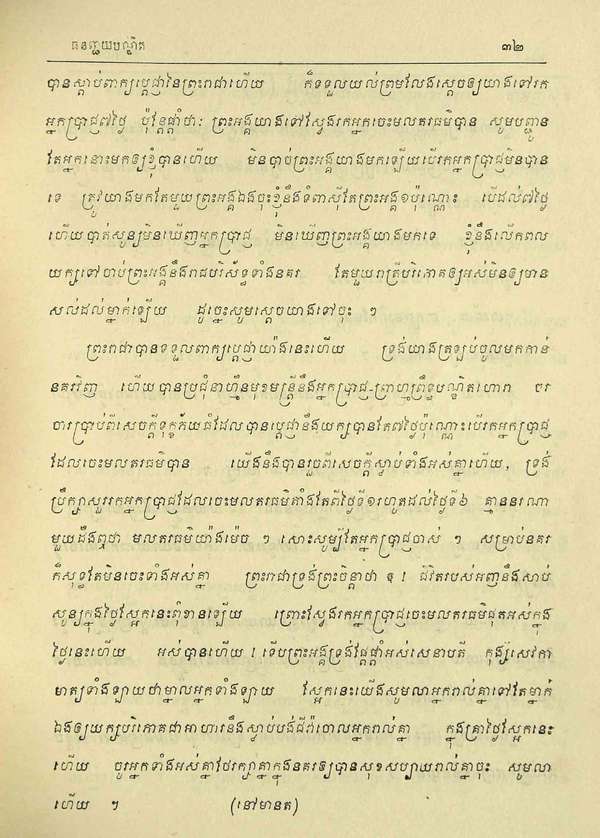 ធនញ្ជយបណ្ឌិត ៣២
បានស្តាប់ពាក្យប្តេជ្ញានៃព្រះរាជាហើយ ក៏ទទួលយល់ព្រមលែងស្តេចឲ្យយាងទៅរក
អ្នកប្រាជ្ញ៧ថ្ងៃ ប៉ុន្តែផ្តាំថា: ព្រះអង្គយាងទៅស្វែងរកអ្នកចេះមលតរធម៌បាន សូមបញ្ជូន
តែអ្នកនោះមកឲ្យខ្ញុំបានហើយ មិនបាច់ព្រះអង្គយាងមកឡើយបើរកអ្នកប្រាជ្ញមិនបាន
ទេ ត្រូវយាងមកតែមួយព្រះអង្គឯងចុះខ្ញុំនឹងទំពាស៊ីតែព្រះអង្គ១ប៉ុណ្ណោះ បើដល់៧ថ្ងៃ
ហើយបាត់សូន្យមិនឃើញអ្នកប្រាជ្ញ មិនឃើញព្រះអង្គយាងមកទេ ខ្ញុំនឹងលើកពល
យក្សទៅចាប់ព្រះអង្គនឹងរាជបរិស័ទ្ទទាំងនគរ តែមួយរាត្រីបរិភោគឲ្យអស់មិនឲ្យមាន
សល់ដល់ម្នាក់ឡើយ ដូច្នេះសូមស្តេចយាងទៅចុះ ។
ព្រះរាជាបានទទួលពាក្យប្តេជ្ញាយ៉ាងនេះហើយ ទ្រង់យាងត្រឡប់ចូលមកកាន់
នគរវិញ ហើយបានប្រជុំនាហ្មឺនមុខមន្ត្រីនឹងអ្នកប្រាជ្ញ-ព្រាហ្មព្រឹទ្ធបណ្ឌិតហោរា ចរ
ចារប្រាប់ពីសេចក្តីទុក្ខភ័យធំដែលបានប្តេជ្ញានឹងយក្សបានតែ៧ថ្ងៃប៉ុណ្ណោះបើរកអ្នកប្រាជ្ញ
ដែលចេះមលតរធម៌បាន យើងនឹងបានរួចពីសេចក្តីស្លាប់ទាំងអស់គ្នាហើយ, ទ្រង់
ប្រឹក្សាសួររកអ្នកប្រាជ្ញដែលចេះមលតរធម៌តាំងតែពីថ្ងៃទី១រហូតដល់ថ្ងៃទី៦ គ្មាននរណា
មួយដឹងឮថា មលតរធម៌យ៉ាងម៉េច ។ សោះសូម្បីតែអ្នកប្រាជ្ញចាស់ ។ សម្រាប់នគរ
ក៏សុទ្ធតែមិនចេះទាំងអស់គ្នា ព្រះរាជាទ្រង់ព្រះចិន្តាថា ឱ ! ជីវិតរបស់អញនឹងស្លាប់
សូន្យក្នុងថ្ងៃស្អែកនេះពុំខានឡើយ ព្រោះស្វែងរកអ្នកប្រាជ្ញចេះមលតរធម៌ផុតអស់ក្នុង
ថ្ងៃនេះហើយ អស់បានហើយ ! ទើបព្រះអង្គទ្រង់ផ្តែផ្តាំអស់សេនាបតី ក្នុងស្សរសេវកា
មាត្យទាំងឡាយថាម្នាលអ្នកទាំងឡាយ ស្អែកនេះយើងសូមលាអ្នករាល់គ្នាទៅតែម្នាក់
ឯងឲ្យយក្សបរិភោគជាអាហារនឹងស្លាប់បង់ជីវ៉ាចោលអ្នករាល់គ្នា ក្នុងគ្រាថ្ងៃស្អែកនេះ
ហើយ ចូរអ្នកទាំងអស់គ្នាថែរក្សាគ្នាក្នុងនគរឲ្យបានសុខសប្បាយរាល់គ្នាចុះ សូមលា
ហើយ ។ (នៅមានត)